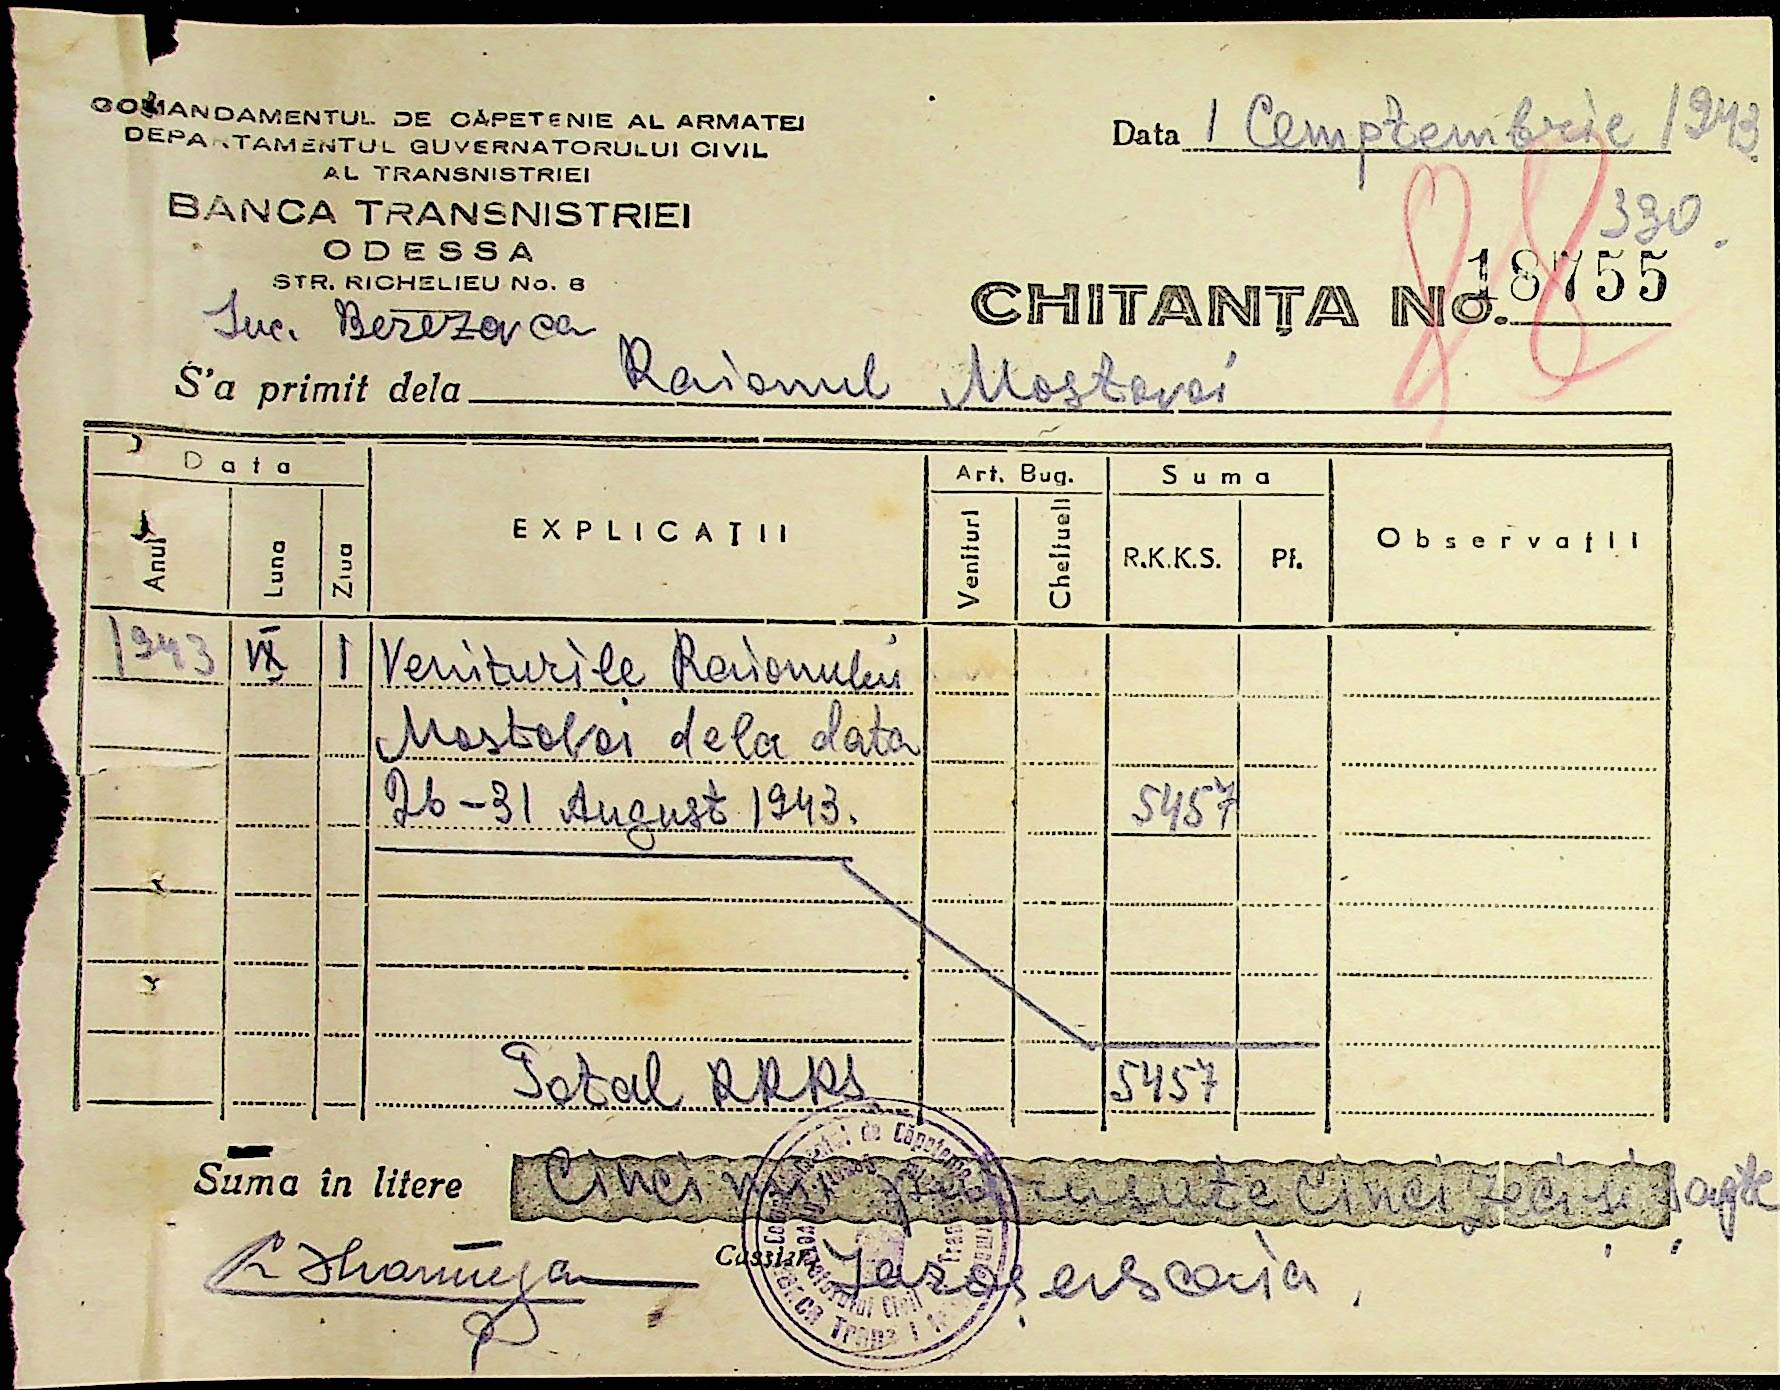 COMANDAMENTUL DE CĂPETENIE AL ARMATEI
DEPARTAMENTUL GUVERNATORULUI CIVIL
AL TRANSNISTRIEI
BANCA TRANSNISTRIEI
ODESSA
STR. RICHELIEU No. 8
Suc. Berezovca
Data 1 Cemptembrie 1943.
330.
CHITANȚA No. 18755
S'a primit dela Raionul Mostovoi
Data
Art. Bug.
Suma
Anul
Luna
Ziua
EXPLICAȚII
Venituri
Cheltueli
R.K.K.S.
Pf.
Observații
1943 IX 1 Veniturile Raionului
Mostovoi dela data
26-31 August 1943. 5457
Total RKKS 5457
Suma în litere Cinci mii patrusute cinci zeci si sapte
Cassier